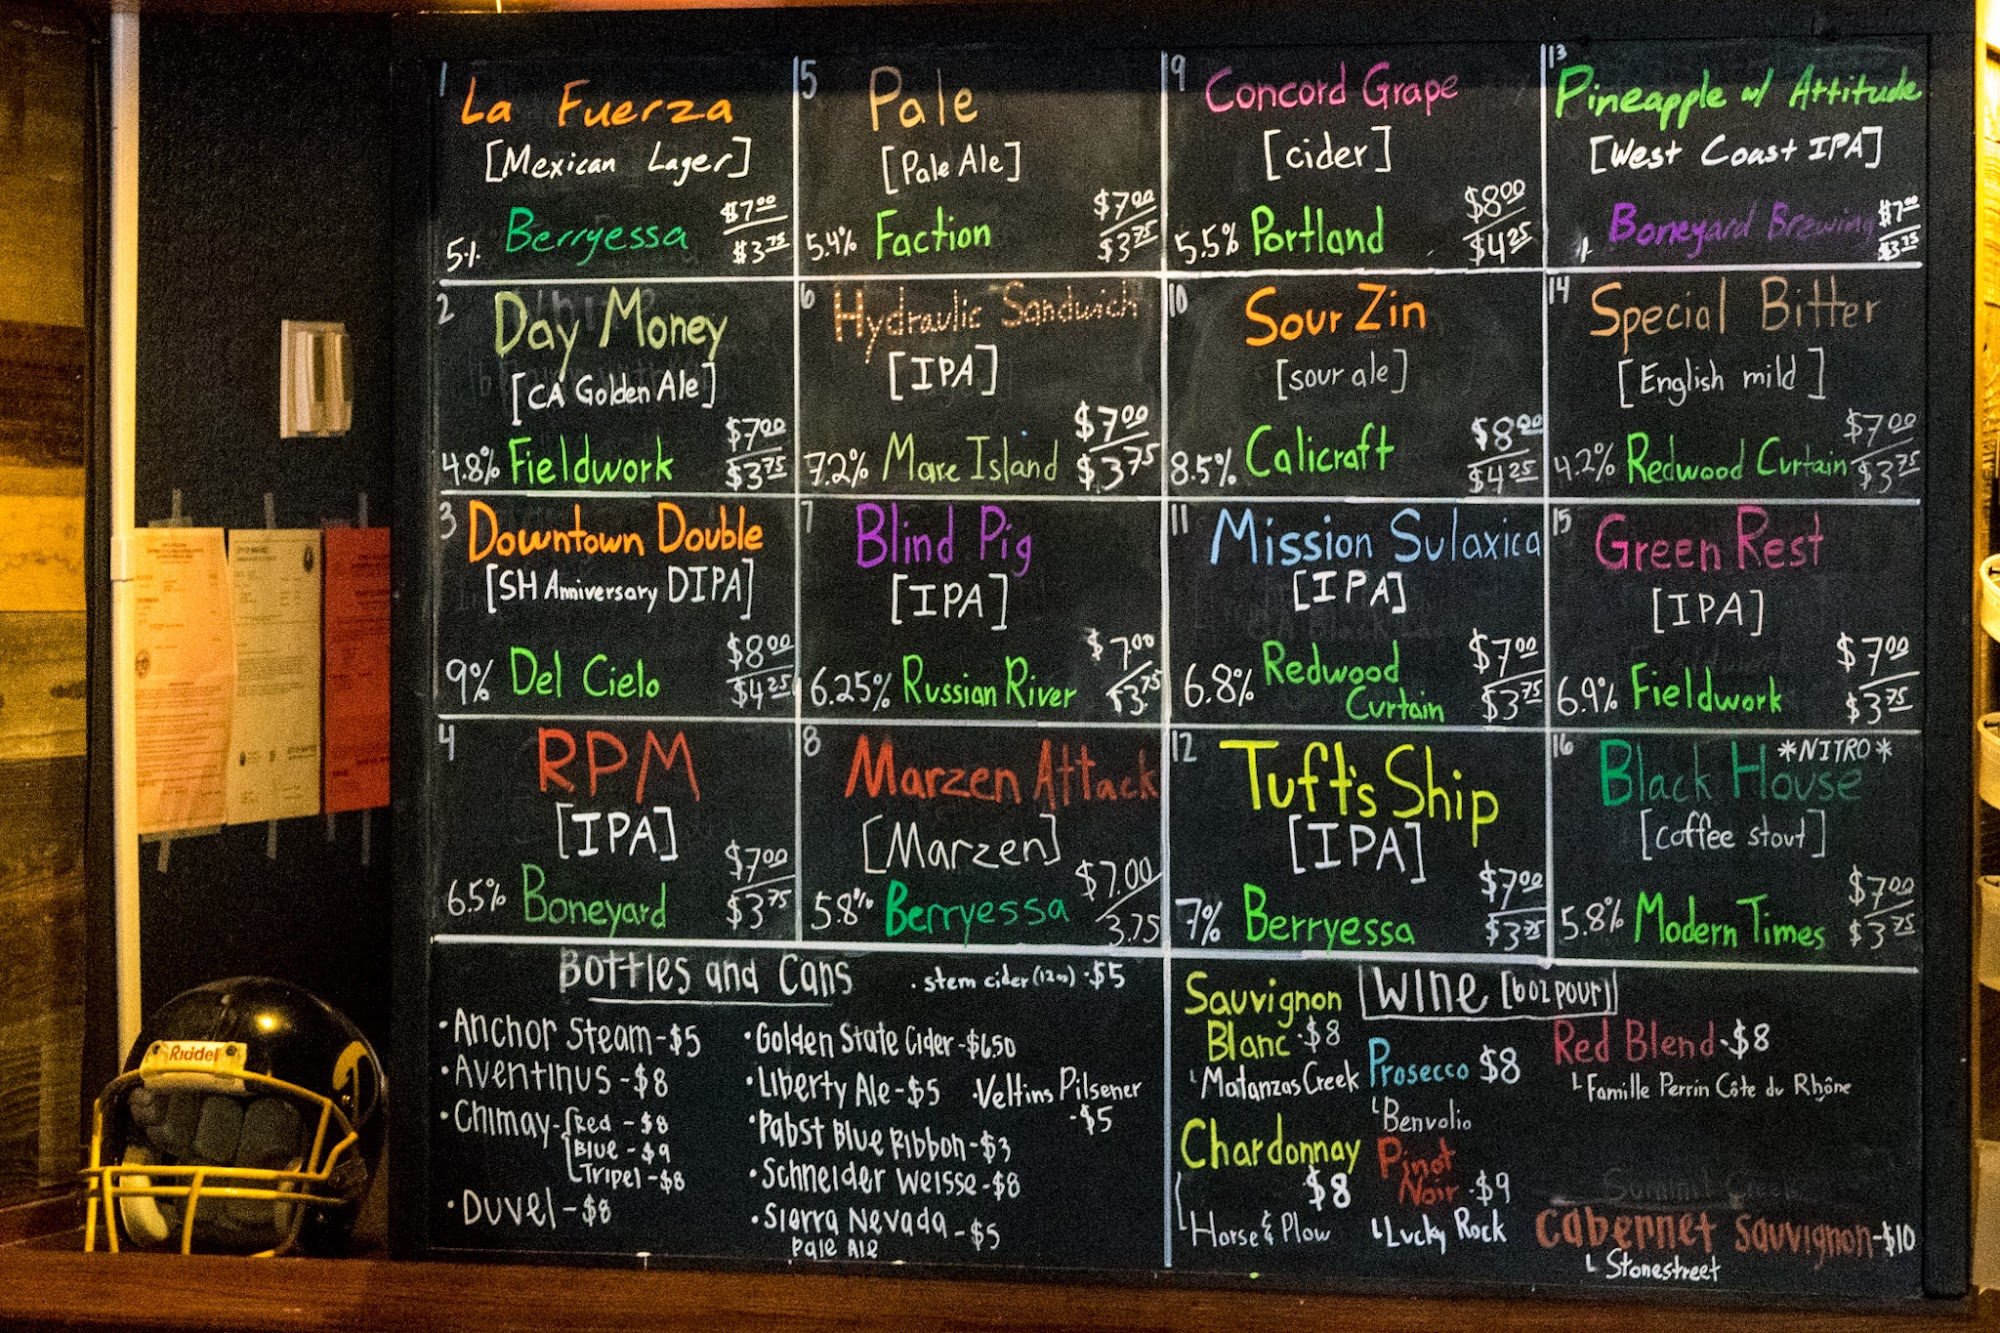 1
La Fuerza
[Mexican Lager]
5% Berryessa $7.00
$3.75
5
Pale
[Pale Ale]
5.4% Faction $7.00
$3.75
9
Concord Grape
[cider]
5.5% Portland $8.00
$4.25
13
Pineapple w/ Attitude
[West Coast IPA]
% Boneyard Brewing $7.00
$3.75
2
Day Money
[CA Golden Ale]
4.8% Fieldwork $7.00
$3.75
6
Hydraulic Sandwich
[IPA]
7.2% Mare Island $7.00
$3.75
10
Sour Zin
[sour ale]
8.5% Calicraft $8.00
$4.25
14
Special Bitter
[English mild]
4.2% Redwood Curtain $7.00
$3.75
3
Downtown Double
[SH Anniversary DIPA]
9% Del Cielo $8.00
$4.25
7
Blind Pig
[IPA]
6.25% Russian River $7.00
$3.75
11
Mission Sulaxica
[IPA]
6.8% Redwood
Curtain $7.00
$3.75
15
Green Rest
[IPA]
6.9% Fieldwork $7.00
$3.75
4
RPM
[IPA]
6.5% Boneyard $7.00
$3.75
8
Marzen Attack
[Marzen]
5.8% Berryessa $7.00
3.75
12
Tuft's Ship
[IPA]
7% Berryessa $7.00
$3.75
16
*NITRO*
Black House
[coffee stout]
5.8% Modern Times $7.00
$3.75
Bottles and Cans
· stem cider (12oz) - $5
· Anchor Steam - $5
· Aventinus - $8
· Chimay - Red - $8
Blue - $9
Tripel - $8
· Duvel - $8
· Golden State Cider - $6.50
· Liberty Ale - $5
· Veltins Pilsener
- $5
· Pabst Blue Ribbon - $3
· Schneider Weisse - $8
· Sierra Nevada - $5
Pale Ale
Wine [6oz pour]
Sauvignon
Blanc - $8
Matanzas Creek
Prosecco $8
Benvolio
Red Blend - $8
Famille Perrin Côte du Rhône
Chardonnay
$8
Horse & Plow
Pinot
Noir - $9
Lucky Rock
Cabernet Sauvignon - $10
Stonestreet
Riddell